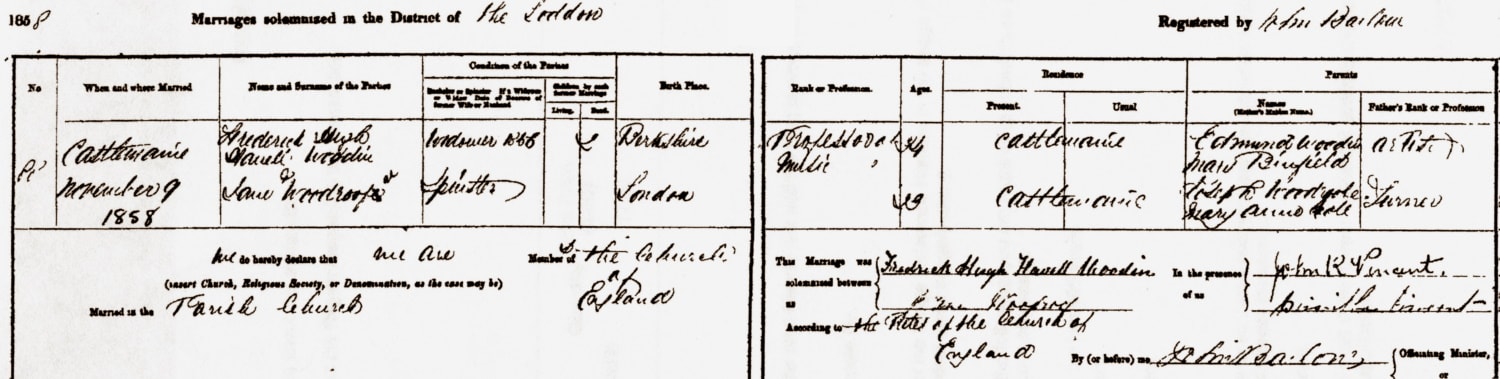 1858 Marriages solemnized in the District of the Loddon
Registered by John Barlow
No
When and where Married
Name and Surname of the Parties
Condition of the Parties
Bachelor or Spinster If a Widower or Widow Date of Decease of former Wife or Husband
Children by each former Marriage
Living. Dead.
Birth Place.
Rank or Profession.
Ages.
Residence
Present. Usual
Parents
Names (Mother's Maiden Name.)
Father's Rank or Profession
Castlemaine
November 9
1858
Frederick Hugh
Havell Woodin
Widower
Berkshire
Professor of
Music
34
Castlemaine
Edmund Woodin
Mary Binfield
artist
Jane Woodroofe
Spinster
London
Castlemaine
Joseph
Mary Anne Cole
Turner
We do hereby declare that we are Members of the Church
(insert Church, Religious Society, or Denomination, as the case may be)
of England
Married in the Parish Church
This Marriage was solemnized between us
Fredrick Hugh Havell Woodin
Jane
In the presence of us
John R Vincent
Vincent
According to the Rites of the Church of
England
By (or before) me John Barlow
Officiating Minister,
or